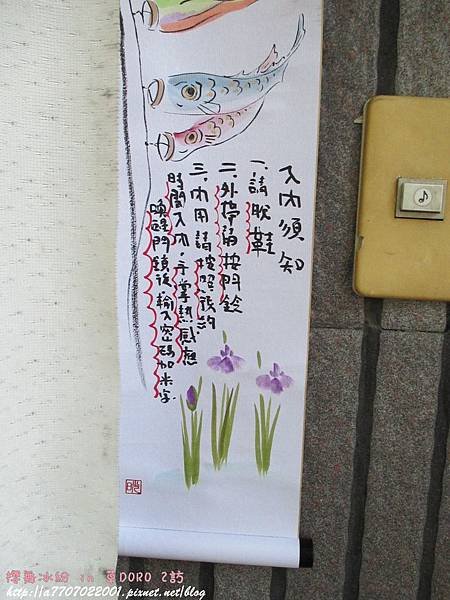 入內須知
一、請脫鞋
二、外帶請按門鈴
三、內用請按照預約
時間入內，手掌熱感應
喚醒門鎖後，輸入密碼加米字.
in DORO 2訪
http://a7707022001.pixnet.net/blog